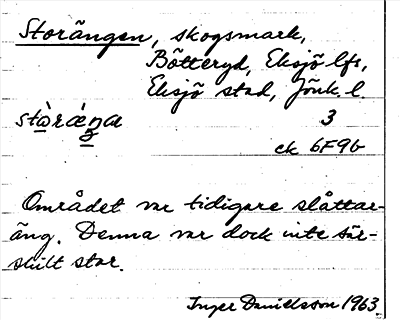 Storängen, skogsmark,
Bötteryd, Eksjö lfs,
Eksjö stad, Jönk. l.
stòræ̀ŋa 3
ek 6F9b
Området var tidigare slåttar-
äng. Denna var dock inte sär-
skilt stor.
Inger Danielsson 1963